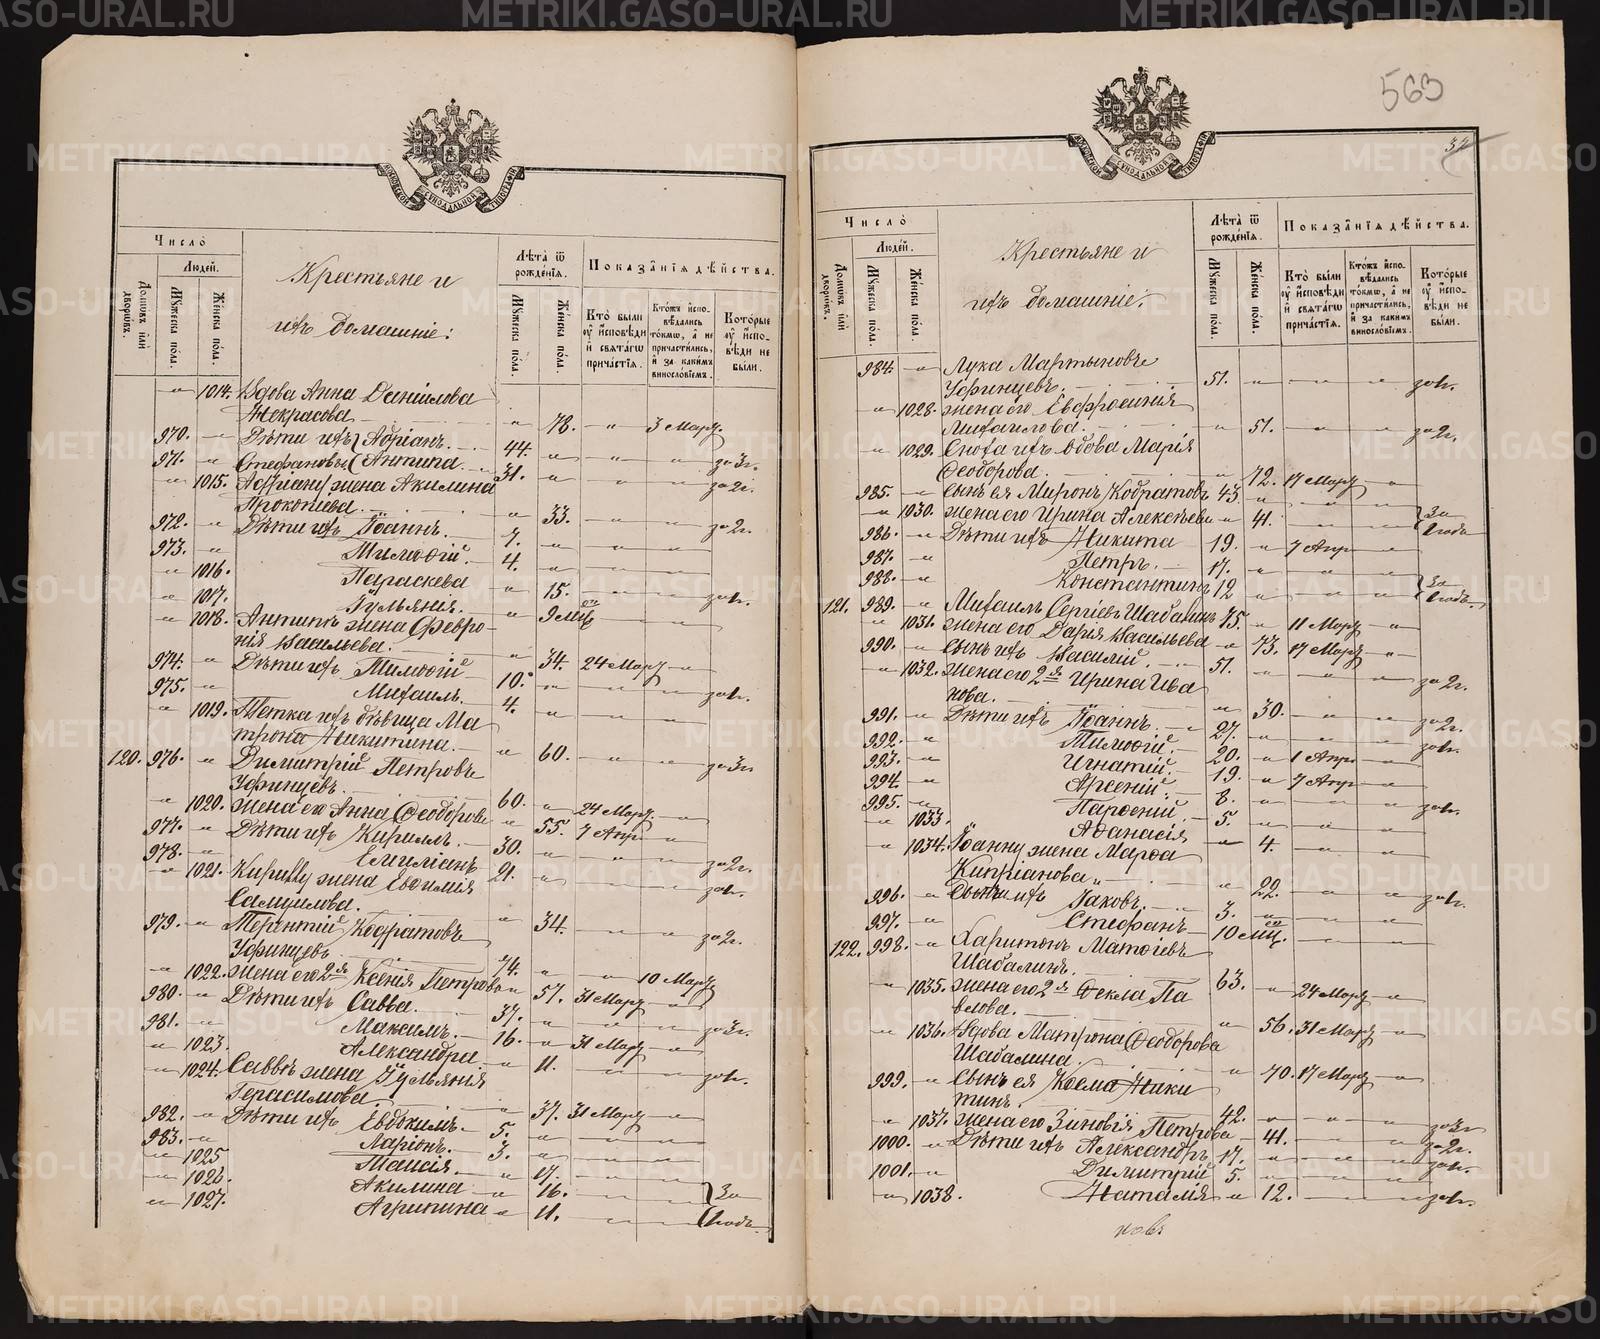 563
32
МОСКОВСКОЙ СѴНОДАЛЬНОЙ ТИПОГРАФІИ
Число̀
Людей.
Домѡвъ или дворѡвъ.
Мꙋжеска пола.
Женска пола.
Крестьяне и
ихъ домашніе:
Лѣта̀ ѿ рожденїѧ.
Мꙋжеска пола.
Женска пола.
Показанїѧ дѣйства.
Кто̀ были ᲂу҆ исповѣди и свѧтагѡ причастїѧ.
Ктожъ исповѣдались токмѡ, а не причастились, и за какимъ винословїемъ.
Которые ᲂу҆ исповѣди не были.
" 1014. Вдова Анна Даніилова
Некрасова. " 78. " 3 Март.
970. " Дѣти ихъ Адріанъ. 44. " " " за 3г.
971. " Стефановы Антипа. 31. " " " за 2г.
" 1015. Адріану жена Акилина
Прокопіева. " 33. " " за 2г.
972. " Дѣти ихъ Іоаннъ. 7. " " "
973. " Тимоѳій. 4. " " "
" 1016. Параскева " 15. " " за 1г.
" 1017. Іульянія. " 9 мцъ
" 1018. Антипы жена Февро-
нія Васильева. " 34. 24 Март "
974. " Дѣти ихъ Тимоѳій 10. " " " за 1г.
975. " Михаилъ. 4. " " "
" 1019. Тетка ихъ дѣвица Ма
трона Никитина. " 60. " " за 3г
120. 976. " Димитрій Петровъ
Уфинцевъ. 60. " 24 Март. "
" 1020. жена его Анна Ѳеодорова " 55. 7 Апр "
977. " Дѣти ихъ Кириллъ. 30. " " " за 2г.
978. " Емиліанъ 21. " " " за 1г.
" 1021. Кириллу жена Евдокія
Самуилова. " 34. " " за 2г.
979. " Терентій Кодратовъ
Уфинцевъ. 74. " " 10 Март
" 1022. жена его 2я Ксенія Петрова " 57. 31 Март "
980. " Дѣти ихъ Савва. 37. " " " за 3г.
981. " Максимъ. 16. " 31 Март "
" 1023. Александра " 11. " " за 1г.
" 1024. Саввѣ жена Іульянія
Герасимова. " 37. 31 Март "
982. " Дѣти ихъ Евдокимъ. 5. " " "
983. " Ларіонъ. 3. " " "
" 1025 Таисія. " 17. " "
" 1026. Акилина " 16. " " За
" 1027. Агрипина " 11. " " 1 годъ
Число̀
Людей.
Домѡвъ или дворѡвъ.
Мꙋжеска пола.
Женска пола.
Крестьяне и
ихъ домашніе:
Лѣта̀ ѿ рожденїѧ.
Мꙋжеска пола.
Женска пола.
Показанїѧ дѣйства.
Кто̀ были ᲂу҆ исповѣди и свѧтагѡ причастїѧ.
Ктожъ исповѣдались токмѡ, а не причастились, и за какимъ винословїемъ.
Которые ᲂу҆ исповѣди не были.
984. " Лука Мартыновъ
Уфинцевъ. 51. " " " за 1г.
" 1028. жена его Евфросинія
Михаилова. " 51. " " за 2г.
" 1029. Сноха ихъ вдова Марія
Ѳеодорова. " 72. 17 Март "
985. " Сынъ ея Миронъ Кодратовъ 43 " " " За
" 1030. жена его Ирина Алексѣева " 41. " " 1 годъ
986. " Дѣти ихъ Никита 19. " 7 Апр "
987. " Петръ. 17. " " " За
988. " Константинъ 12 " " " 1 годъ.
121. 989. " Михаилъ Сергіевъ Шабалинъ 75. " 11 Март "
" 1031. жена его Дарія Васильева " 73. 17 Март "
990. " Сынъ ихъ Василій. 51. " " " за 2г.
" 1032. жена его 2я Ирина Ива
нова. " 30. " " за 2г.
991. " Дѣти ихъ Іоаннъ. 27. " " " за 1г.
992. " Тимоѳій. 20. " 1 Апр "
993. " Игнатій. 19. " 7 Апр "
994. " Арсеній. 8. " " " за 1г.
995. " Парѳеній. 5. " " "
" 1033. Аѳанасія " 4. " "
" 1034. Іоанну жена Марѳа
Кипріанова. " 22. " " за 1г.
996. " Сыны ихъ Іаковъ. 3. " " "
997. " Стефанъ 10 мц. " "
122. 998. " Харитонъ Матѳіевъ
Шабалинъ. 63. " 24 Март "
" 1035. жена его 2я Ѳекла Па
влова. " 56. 31 Март "
" 1036. Вдова Матрона Ѳеодорова
Шабалина. " 70. 17 Март "
999. " Сынъ ея Косма Ники
тинъ. 42. " " " за 3г
" 1037. жена его Зиновія Петрова " 41. " " за 2г.
1000. " Дѣти ихъ Александръ 17. " " " за 1г.
1001. " Димитрій 5. " " "
" 1038. Наталія " 12. " " за 1г.